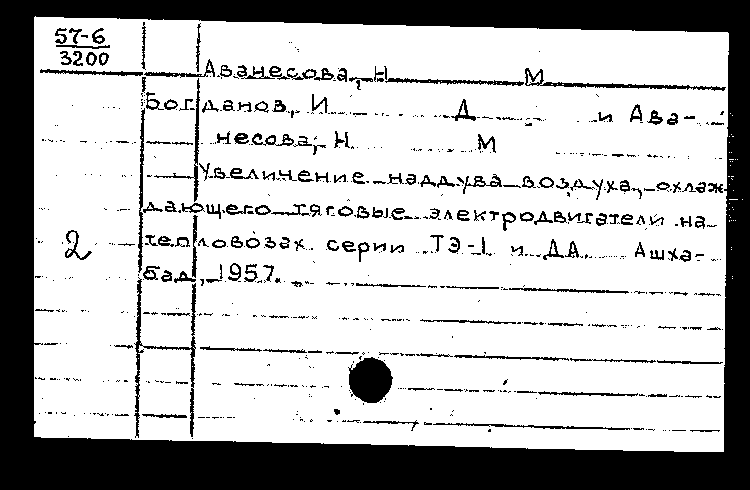 57-6
3200
Аванесова, Н М
Богданов, И Д и Ава-
несова, Н М
Увеличение наддува воздуха, охлаж
дающего тяговые электродвигатели на
тепловозах серии ТЭ-1 и ДА. Ашха-
2
бад, 1957.